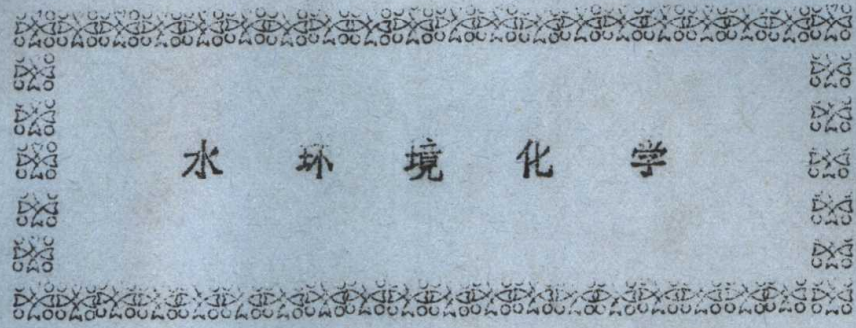 水环境化学